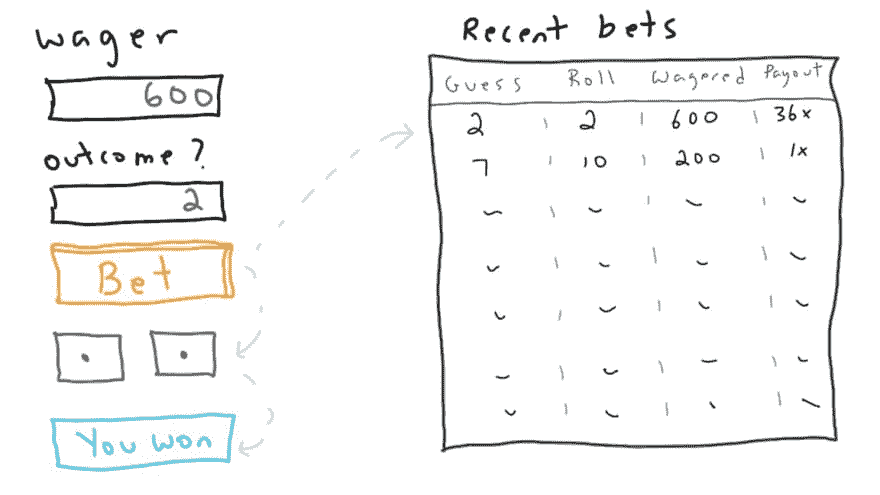 wager
600
outcome?
2
Bet
You won
Recent bets
Guess Roll Wagered Payout
2 | 2 | 600 | 36x
7 | 10 | 200 | 1x